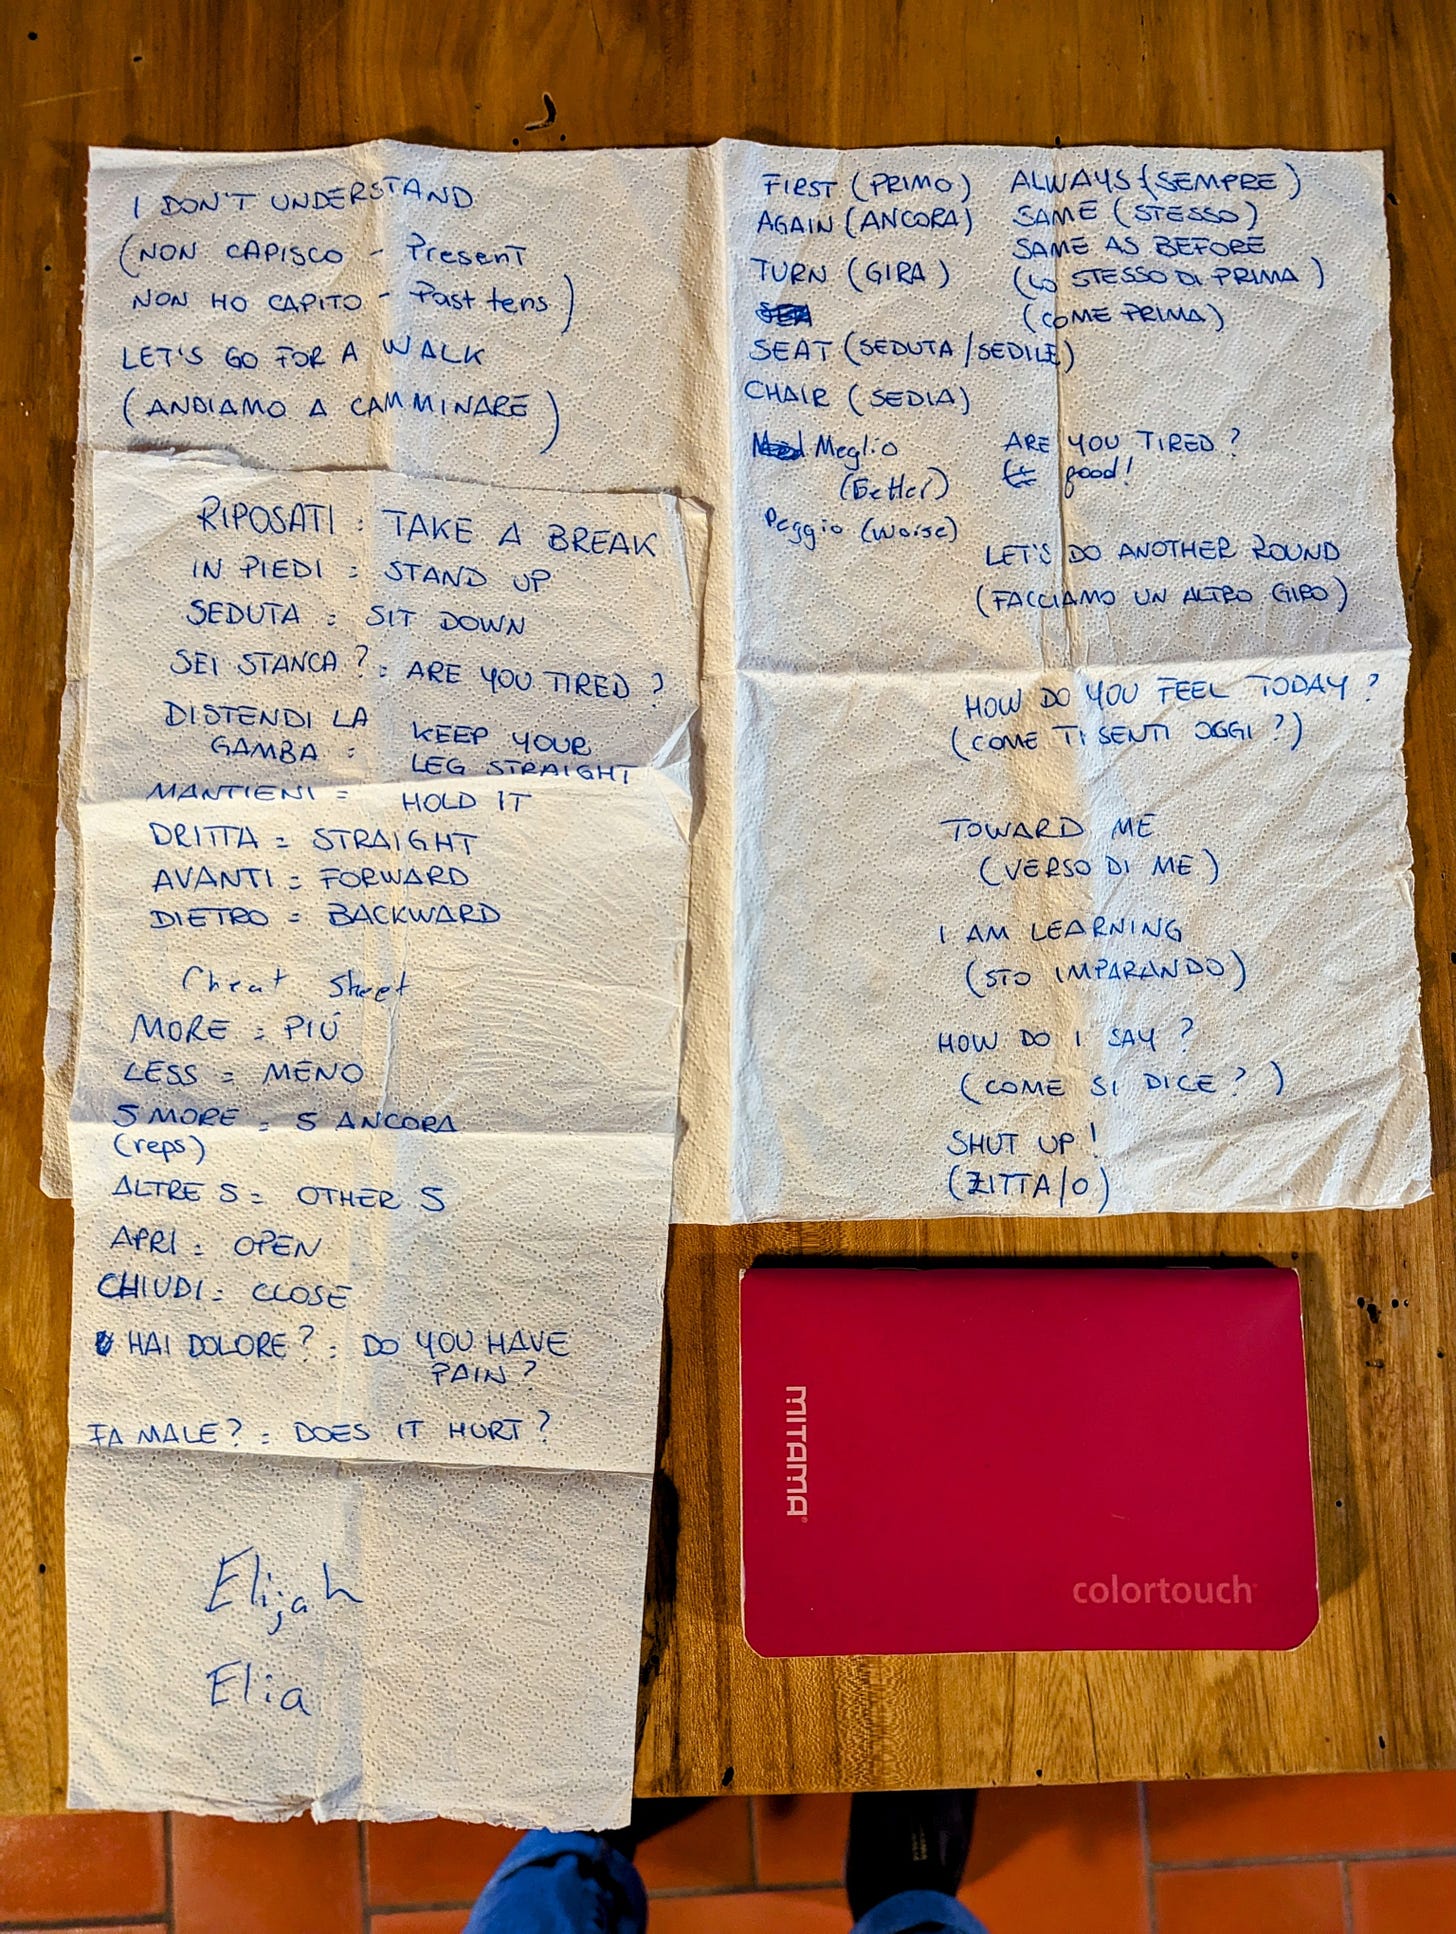 I DON'T UNDERSTAND
(NON CAPISCO - Present
NON HO CAPITO - Past tens)
LET'S GO FOR A WALK
(ANDIAMO A CAMMINARE)
RIPOSATI : TAKE A BREAK
IN PIEDI = STAND UP
SEDUTA = SIT DOWN
SEI STANCA? = ARE YOU TIRED?
DISTENDI LA GAMBA = KEEP YOUR
LEG STRAIGHT
MANTIENI = HOLD IT
DRITTA = STRAIGHT
AVANTI = FORWARD
DIETRO = BACKWARD
Cheat Sheet
MORE = PIÚ
LESS = MENO
5 MORE = 5 ANCORA
(reps)
ALTRE 5 = OTHER 5
APRI = OPEN
CHIUDI = CLOSE
HAI DOLORE? = DO YOU HAVE
PAIN?
FA MALE? = DOES IT HURT?
Elijah
Elia
FIRST (PRIMO)
AGAIN (ANCORA)
TURN (GIRA)
SEAT (SEDUTA/SEDILE)
CHAIR (SEDIA)
Meglio
(Better)
Peggio (Worse)
ALWAYS (SEMPRE)
SAME (STESSO)
SAME AS BEFORE
(LO STESSO DI PRIMA)
(COME PRIMA)
ARE YOU TIRED?
good!
LET'S DO ANOTHER ROUND
(FACCIAMO UN ALTRO GIRO)
HOW DO YOU FEEL TODAY?
(COME TI SENTI OGGI?)
TOWARD ME
(VERSO DI ME)
I AM LEARNING
(STO IMPARANDO)
HOW DO I SAY?
(COME SI DICE?)
SHUT UP!
(ZITTA/O)
MITAMA
colortouch